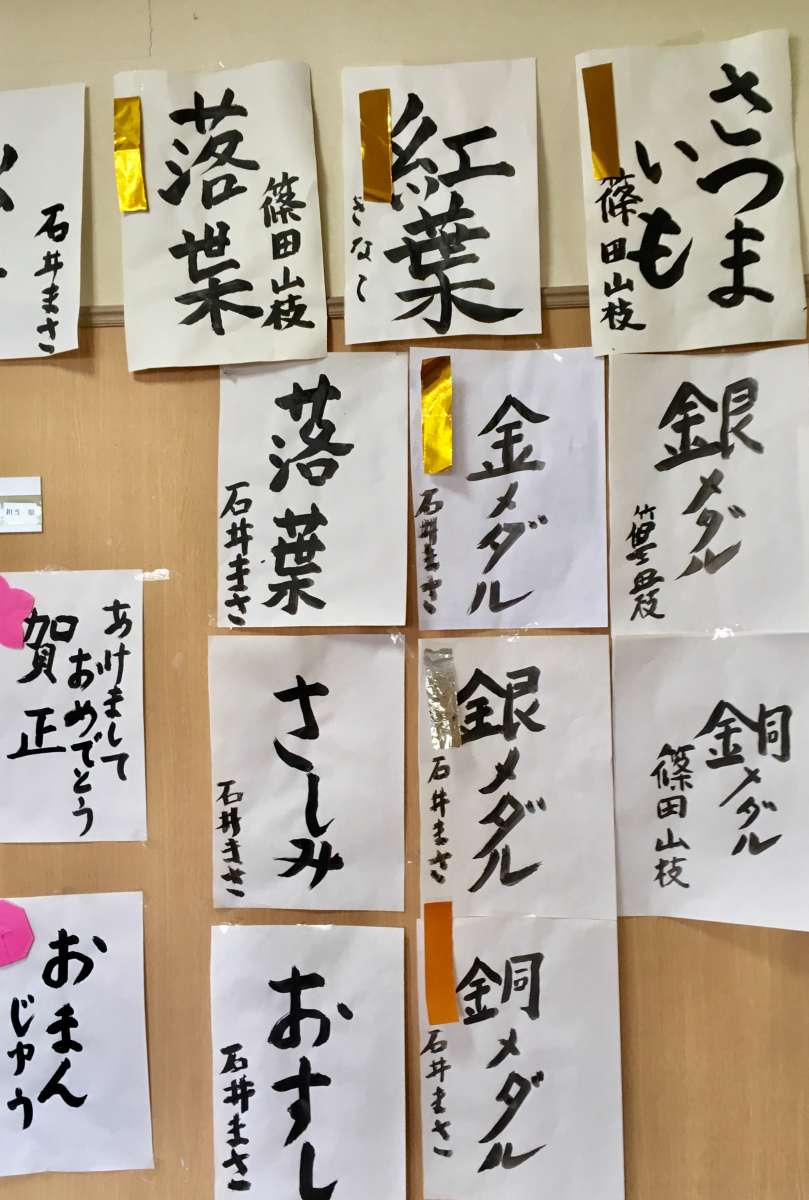 石井まさ
落葉
篠田山枝
紅葉
きなこ
さつま
いも
篠田山枝
落葉
石井まさ
金メダル
石井まさ
銀メダル
あけまして
おめでとう
賀正
さしみ
石井まさ
銀メダル
石井まさ
銅メダル
篠田山枝
おまん
じゅう
おすし
石井まさ
銅メダル
石井まさ